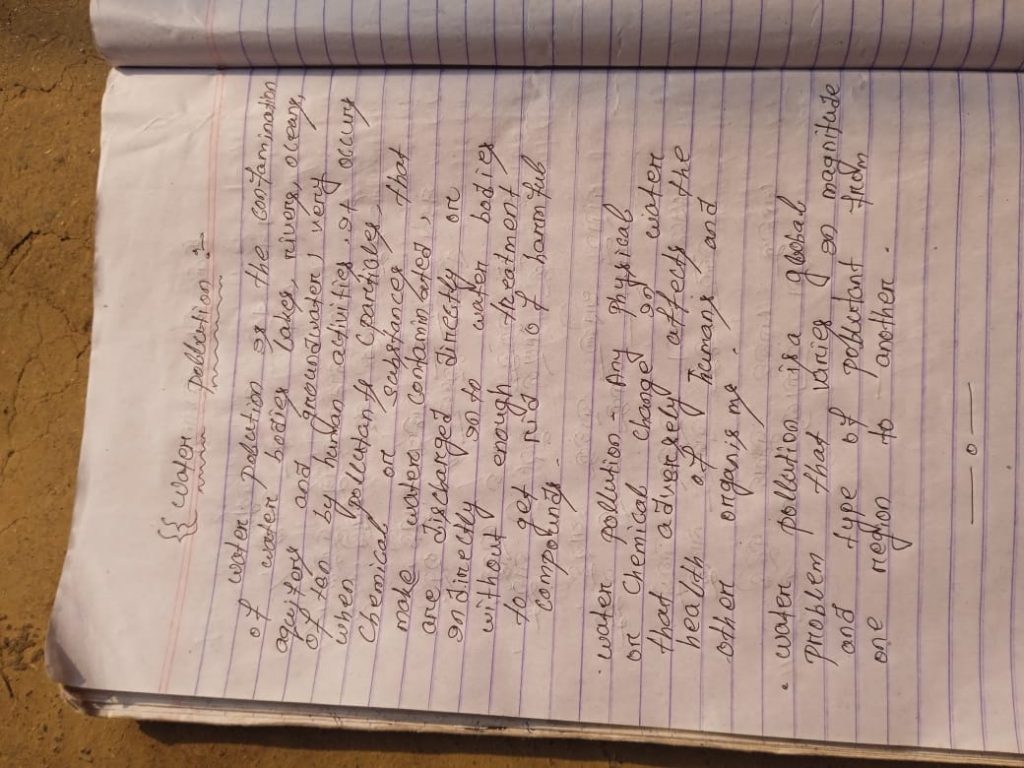 {{ Water Pollution ?
water pollution is the contamination
of water bodies lakes, rivers, oceans,
aquifers and groundwater, very
often by human activities, it occurs
when pollutants (particles,
chemical or substances that
make water contaminated,
are discharged directly or
indirectly into water bodies
without enough treatment
to get rid of harmful
compounds.
water pollution - Any physical
or chemical change in water
that adversely affects the
health of humans and
other organisms
. water pollution is a global
problem that varies in magnitude
and type of pollutant from
one region to another .
— o —